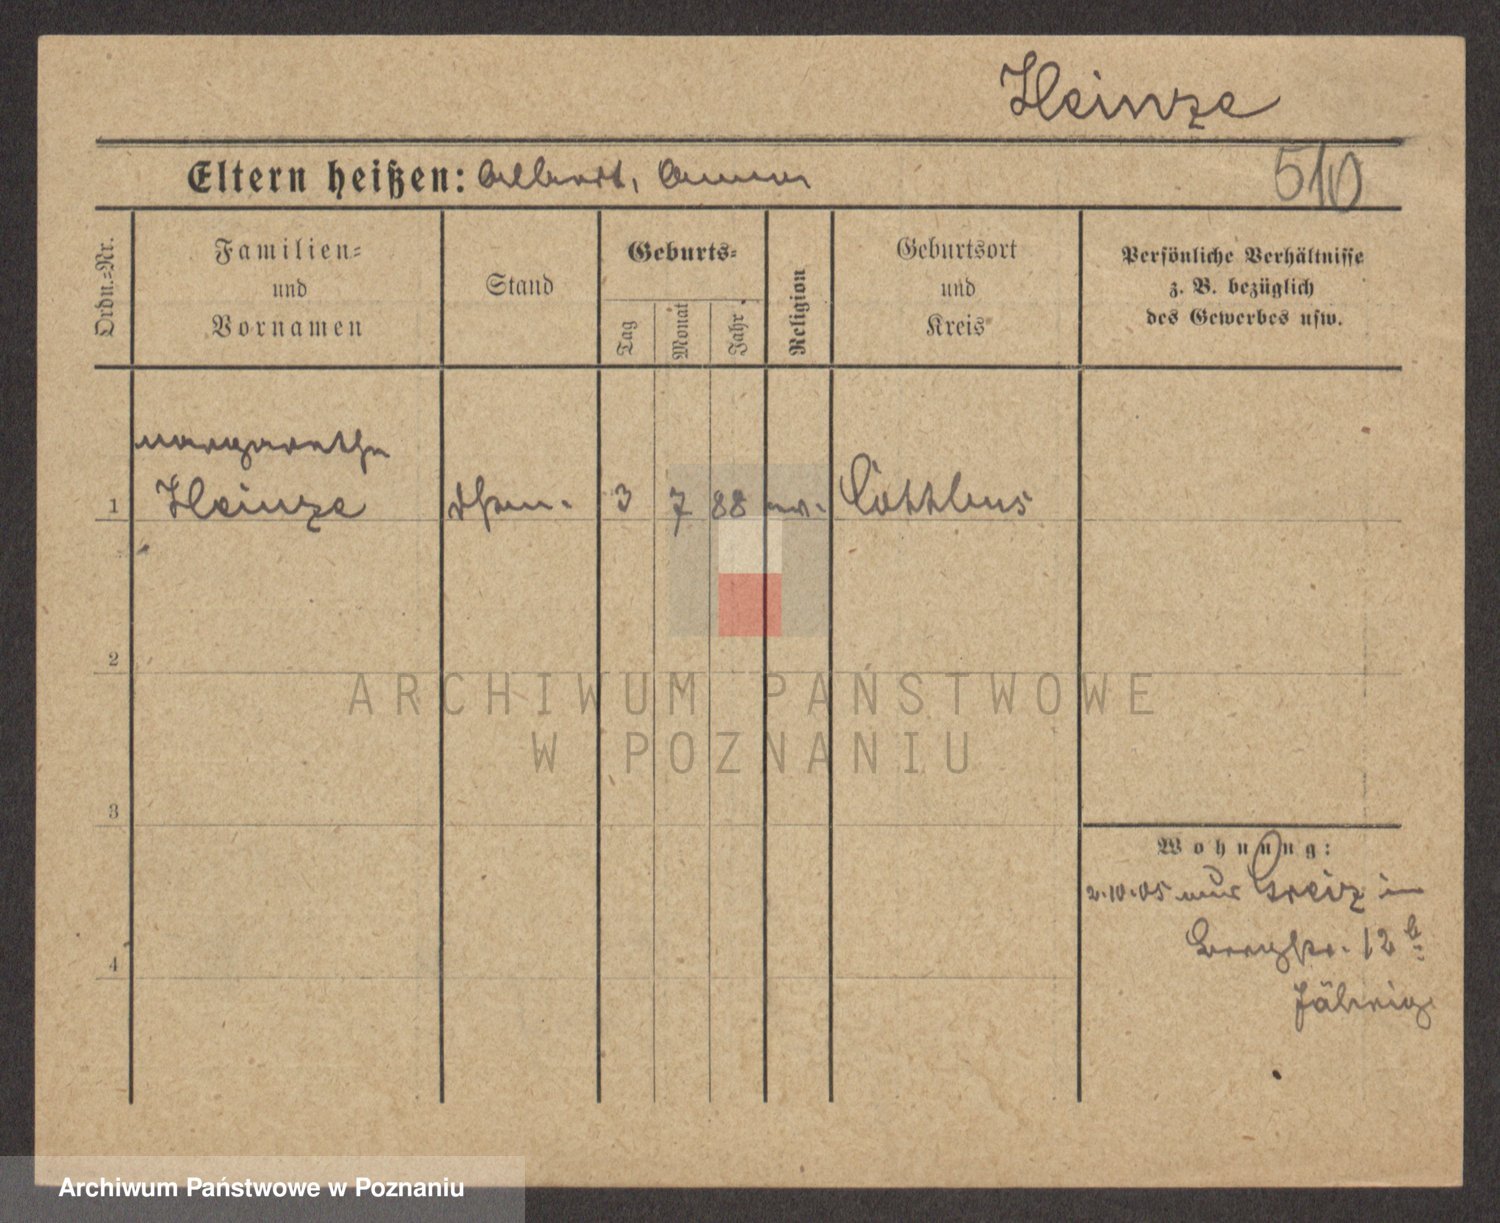 Heinze
Eltern heißen: Albert, Anna
510
Ordn.=Nr.
Familien=
und
Vornamen
Stand
Geburts=
Tag
Monat
Jahr
Religion
Geburtsort
und
Kreis
Persönliche Verhältnisse
z. B. bezüglich
des Gewerbes usw.
Margarethe
1 Heinze 3 7 88 ev. Cottbus
2
3
4
Wohnung:
2.10.05 aus Greiz in
Bergstr. 12 b
Fährig
ARCHIWUM PAŃSTWOWE
W POZNANIU
Archiwum Państwowe w Poznaniu